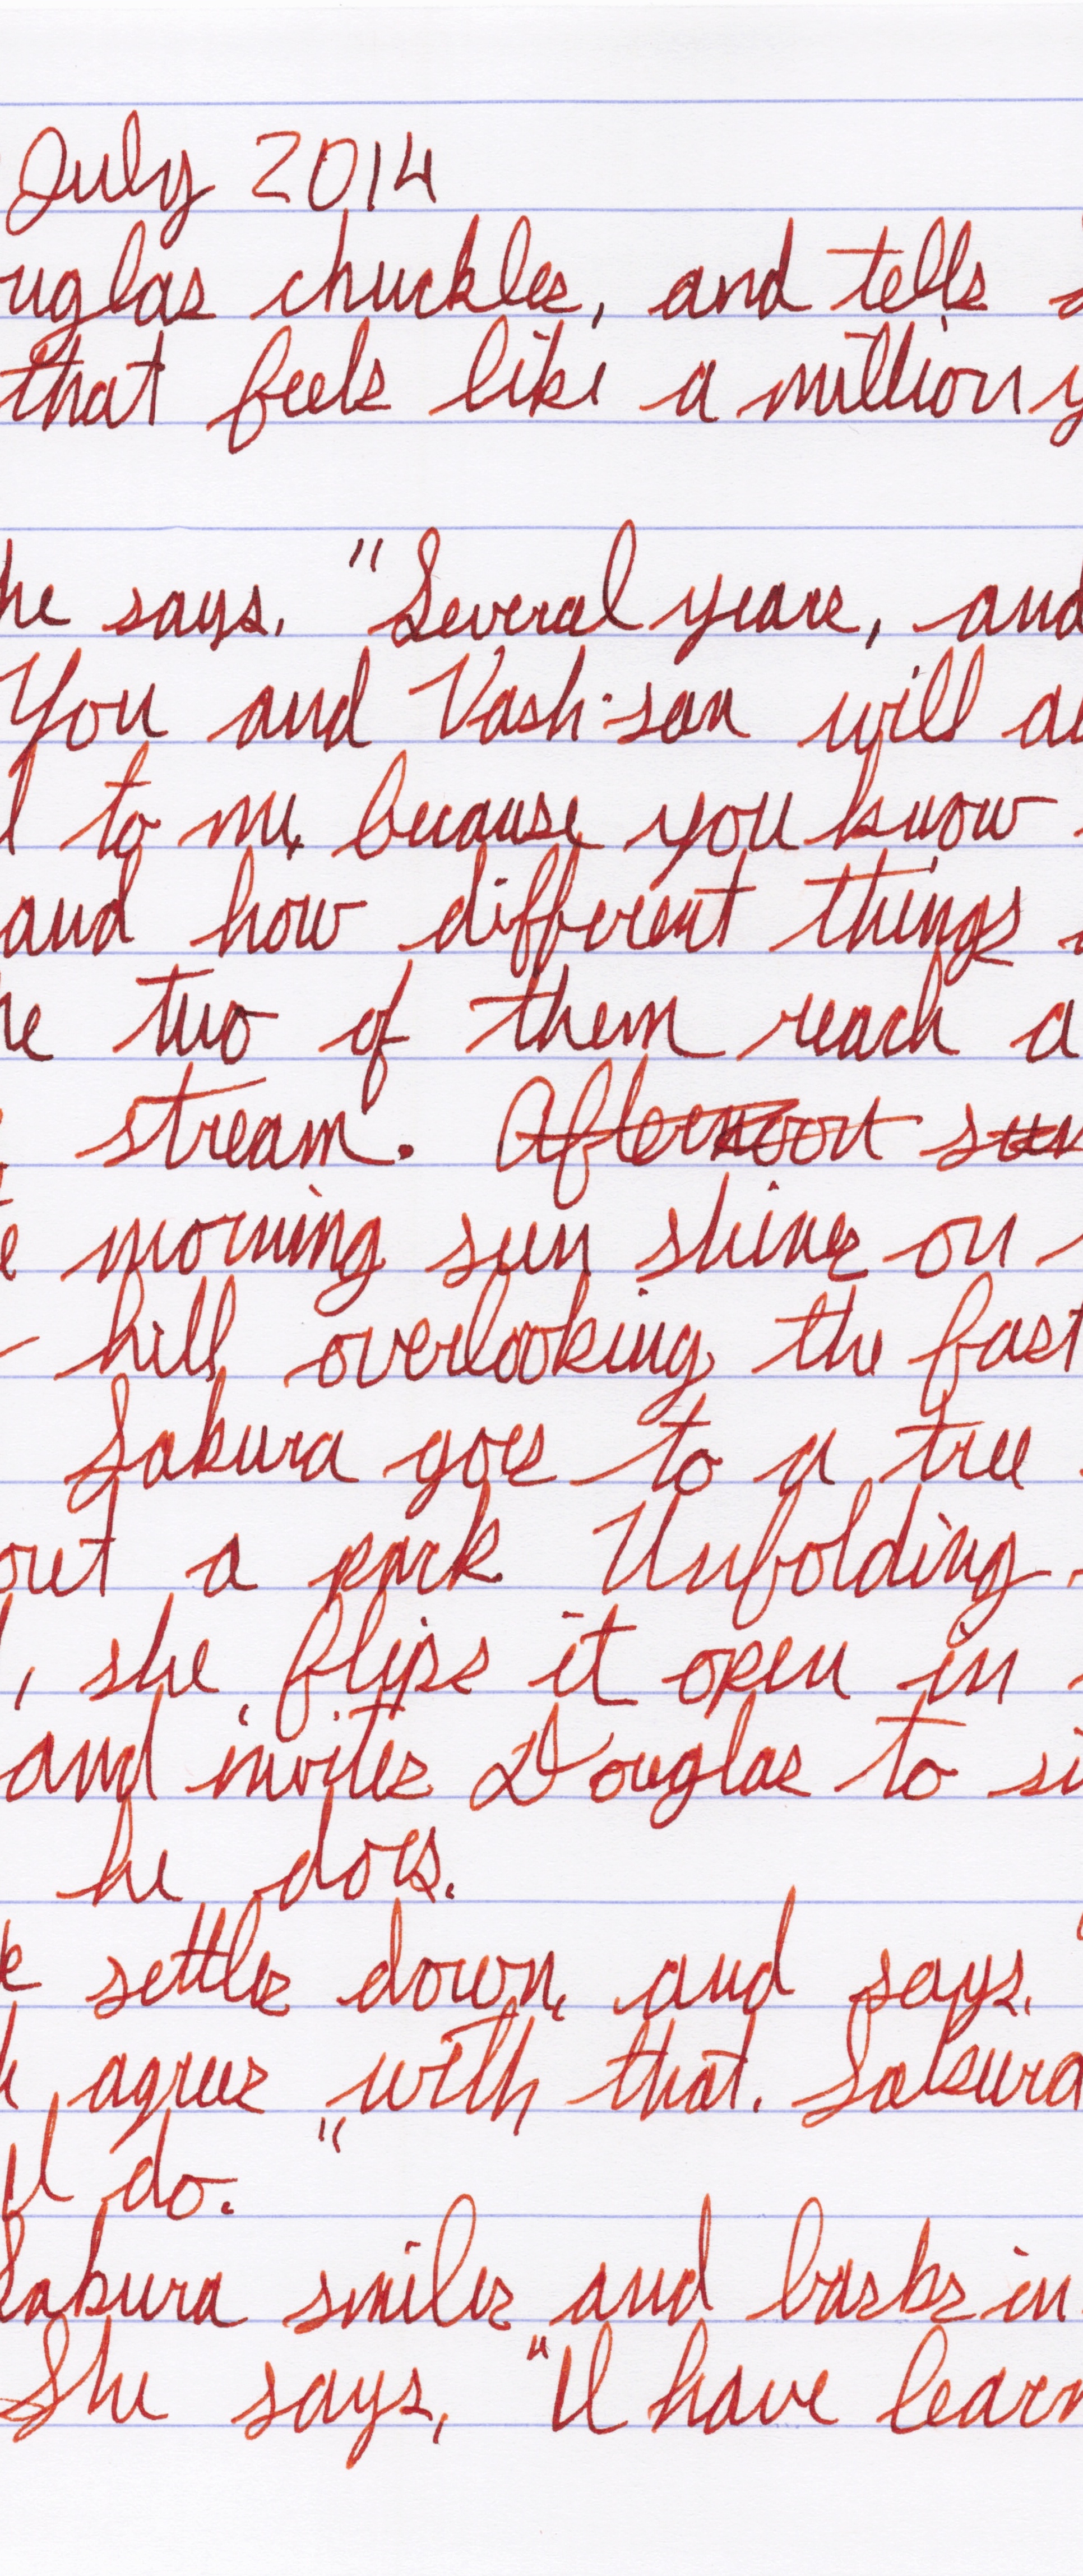 July 2014
uglas chuckles, and tells
that feels like a million y
he says. "Several years, and
You and Vash-san will a
l to me, because you know
and how different things
he two of them reach a
stream. Afternoon sun
e morning sun shines on
hill overlooking the fast
Sakura goes to a tree
out a park Unfolding
, she flips it open in
and invites Douglas to si
he does.
settles down, and says,
agree with that. Sakura
I do."
Sakura smiles and basks in
She says, "I have learn